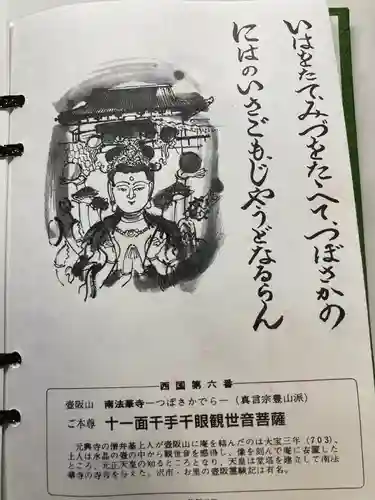 いはをたて、みづをたゝへて、つぼさかの
にはのいさごも、じやうどなるらん
西国第六番
壺阪山 南法華寺―つぼさかでら―(真言宗豊山派)
ご本尊 十一面千手千眼観世音菩薩
元興寺の僧弁基上人が壺阪山に庵を結んだのは大宝三年(703)、
上人は水晶の壺の中から観世音を感得し、像を刻んで庵に安置した
ところ、元正天皇の知るところとなり、天皇は堂塔を建立して南法
華寺の寺号を与えた。沢市・お里の壺阪霊験記は有名。